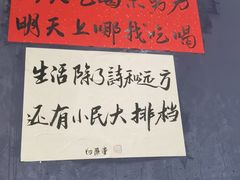 明天上哪找吃喝
生活除了詩和远方
还有小民大排档